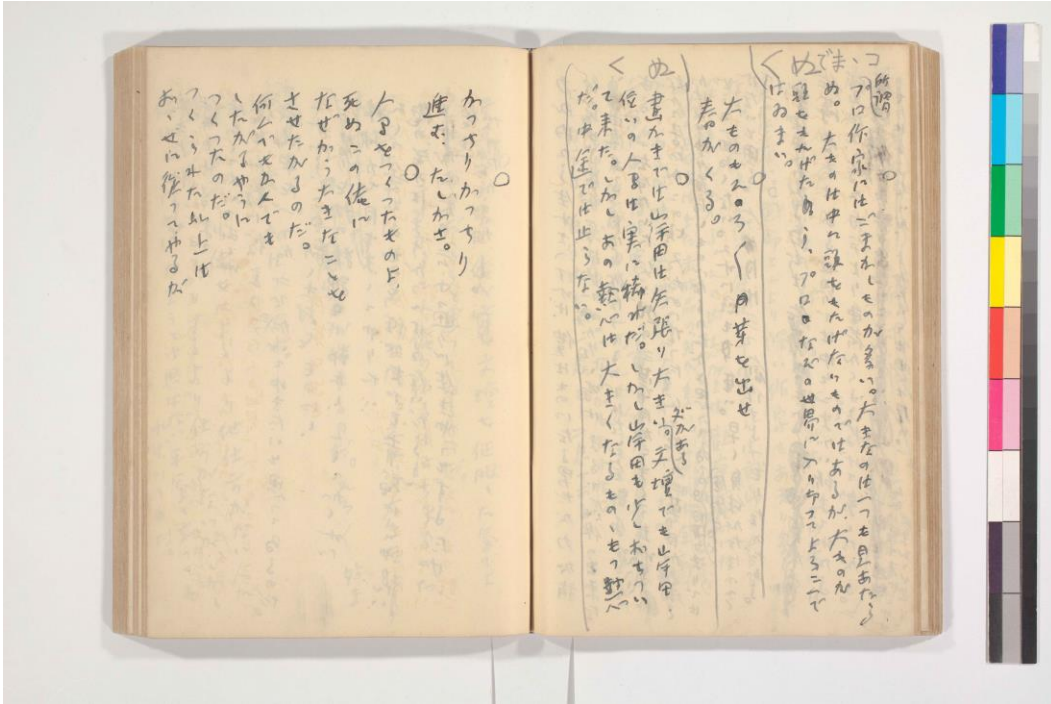 ○
所謂
プロ作家にはごまかしものが多い。大きなのは一つも見あたら
ぬ。大ものは中々頭をもたげないものではあるが、大ものが
頭をもたげたら、プロなどの世界に入り切って
はゐまい。
○
大ものものろ〱月芽を出せ
春がくる。
○
書かきでは岸田は矢張り大きい。文壇でも岸田
だがある
位いの人は実に稀れだ。しかし岸田も少しおちつい
て来た。しかしあの熱心は大きくなるものゝもつ熱心
だ。中途では止らない。
○
かつちりかつちり
進む、たしかさ。
○
人るをつくつたものよ、
死ぬこの俺に
なぜかう大きなことを
させたがるのだ。
何んでもかんでも
したがるやうに
つくつたのだ。
つくられた以上は
おゝせに従つてやるが